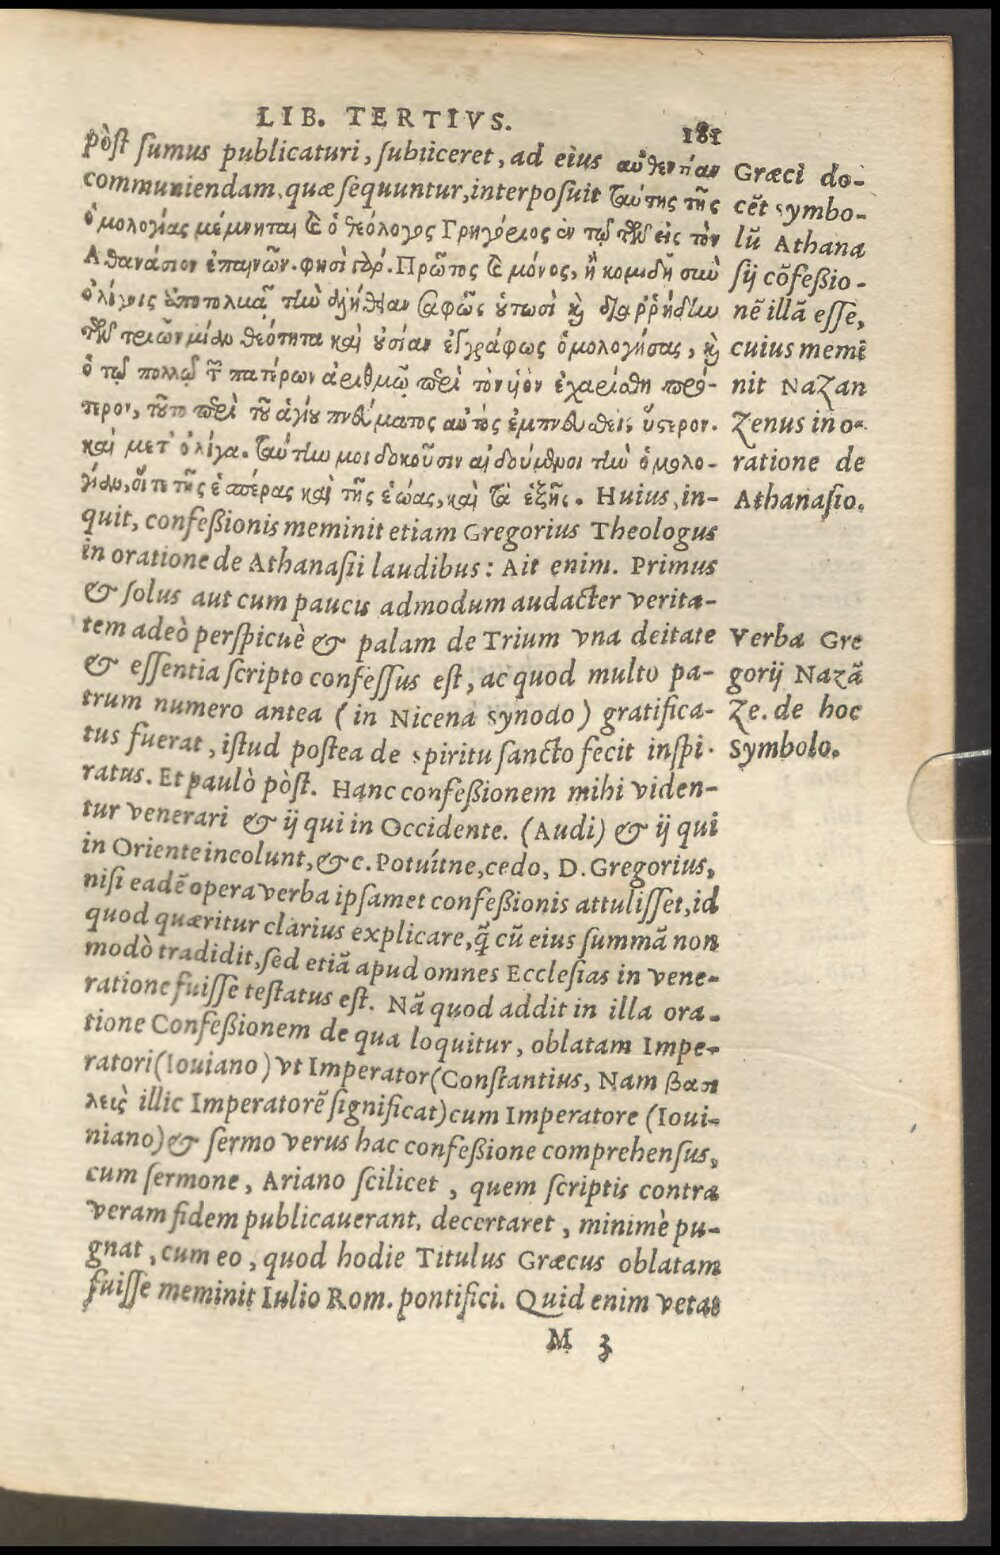 LIB. TERTIVS.
181
pòst sumus publicaturi, subiiceret, ad eius αὐθεντίαν
communiendam, quæ sequuntur, interposuit ταύτης τῆς
ὁμολογίας μέμνηται καὶ ὁ θεόλογος Γρηγόριος ἐν τῷ τῶν εἰς τὸν
Ἀθανάσιον ἐπαινῶν. φησὶ γάρ. Πρῶτος καὶ μόνος, ἢ κομιδῆ σὺν
ὀλίγοις ἀποτολμᾷ τὴν ἀλήθειαν σαφῶς οὑτωσὶ καὶ διαρρήδην
τῶν τριῶν μίαν θεότητα καὶ οὐσίαν ἐγγράφως ὁμολογήσας, καὶ
ὃ τῷ πολλῷ τῶν πατέρων ἀριθμῷ περὶ τὸν υἱὸν ἐχαρίσθη πρό-
τερον, τοῦτο περὶ τοῦ ἁγίου πνεύματος αὐτὸς ἐμπνευσθεὶς ὕστερον.
καὶ μετ' ὀλίγα. ταύτην μοι δοκοῦσιν αἰδούμενοι τὴν ὁμολο-
γίαν, οἵ τε τῆς ἑσπέρας καὶ τῆς ἑώας, καὶ τὰ ἑξῆς. Huius, in-
quit, confeßionis meminit etiam Gregorius Theologus
in oratione de Athanasii laudibus: Ait enim. Primus
& solus aut cum paucis admodum audacter verita-
tem adeò perspicuè & palam de Trium vna deitate
& essentia scripto confessus est, ac quod multo pa-
trum numero antea (in Nicena Synodo) gratifica-
tus fuerat, istud postea de Spiritu sancto fecit inspi-
ratus. Et paulò pòst. Hanc confeßionem mihi viden-
tur venerari & ij qui in Occidente. (Audi) & ij qui
in Oriente incolunt, &c. Potuítne, cedo, D. Gregorius,
nisi eadẽ opera verba ipsamet confeßionis attulisset, id
quod quæritur clarius explicare, q̃ cũ eius summã non
modò tradidit, sed etiã apud omnes Ecclesias in vene-
ratione fuisse testatus est. Nã quod addit in illa ora-
tione Confeßionem de qua loquitur, oblatam Impe-
ratori (Iouiano) vt Imperator (Constantius, Nam βασι
λεὺς illic Imperatorẽ significat) cum Imperatore (Ioui-
niano) & sermo verus hac confeßione comprehensus,
cum sermone, Ariano scilicet, quem scriptis contra
veram fidem publicauerant, decertaret, minimè pu-
gnat, cum eo, quod hodie Titulus Græcus oblatam
fuisse meminit Iulio Rom. pontifici. Quid enim vetat
M 3
Græci do-
cẽt Symbo-
lũ Athana
sij cõfeßio-
nẽ illã esse,
cuius memĩ
nit Nazan
zenus in o-
ratione de
Athanasio.
Verba Gre
gorij Nazã
ze. de hoc
Symbolo.